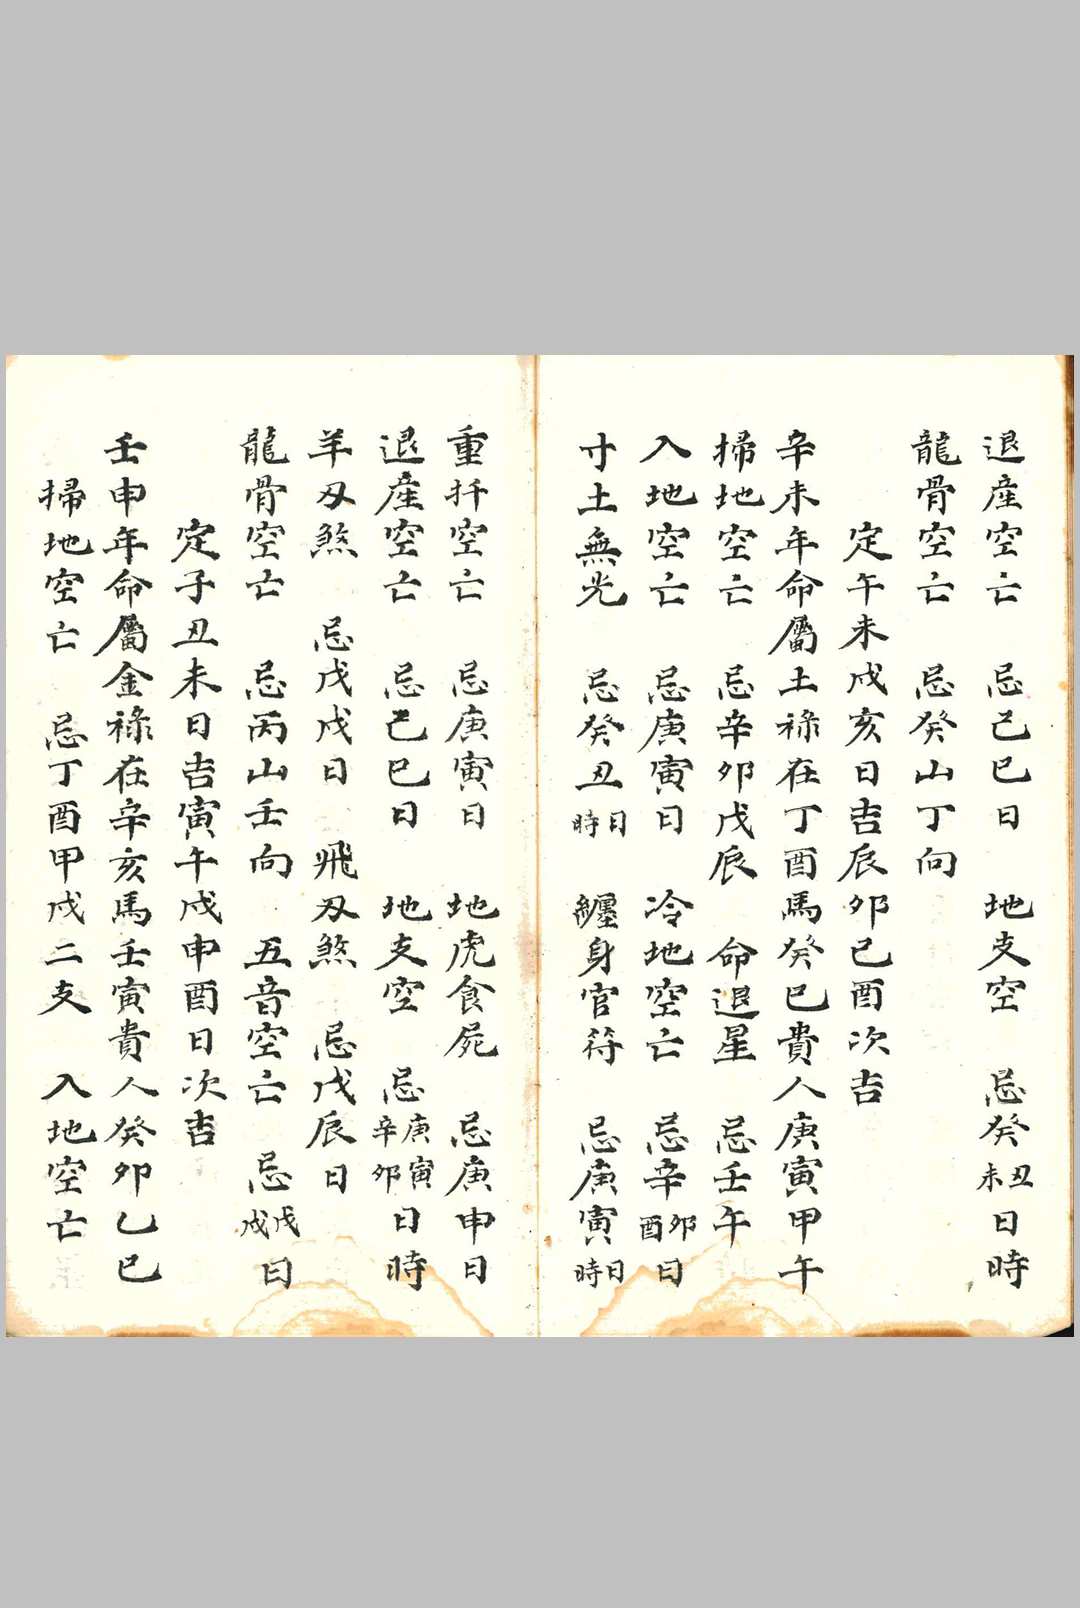 退產空亡　忌己巳日　地支空　忌癸丑未日時
龍骨空亡　忌癸山丁向
定午未戌亥日吉辰卯巳酉次吉
辛未年命屬土祿在丁酉馬癸巳貴人庚寅甲午
掃地空亡　忌辛卯戊辰　命退星　忌壬午
入地空亡　忌庚寅日　冷地空亡　忌辛卯酉日
寸土無光　忌癸丑日時　纏身官符　忌庚寅日時
重扦空亡　忌庚寅日　地虎食屍　忌庚申日
退產空亡　忌己巳日　地支空　忌庚寅辛卯日時
羊刃煞　忌戊戌日　飛刃煞　忌戊辰日
龍骨空亡　忌丙山壬向　五音空亡　忌戊戌日
定子丑未日吉寅午戌申酉日次吉
壬申年命屬金祿在辛亥馬壬寅貴人癸卯乙巳
掃地空亡　忌丁酉甲戌二支　入地空亡